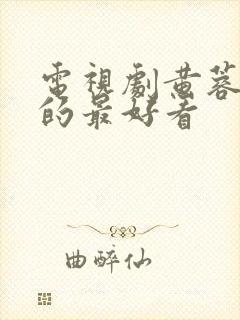 電視劇黃蓉
的最好看
曲醉仙